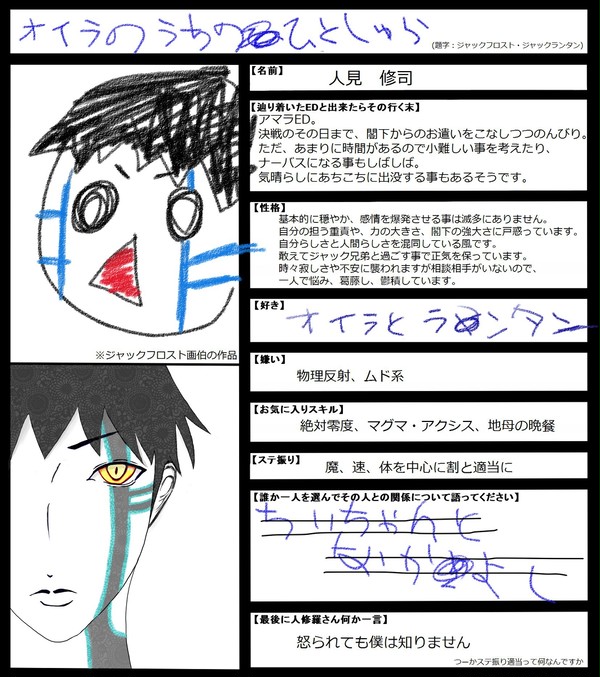 オイラのうちのひとしゅら
(題字：ジャックフロスト・ジャックランタン)
※ジャックフロスト画伯の作品
【名前】
人見　修司
【辿り着いたEDと出来たらその行く末】
アマラED。
決戦のその日まで、閣下からのお遣いをこなしつつのんびり。
ただ、あまりに時間があるので小難しい事を考えたり、
ナーバスになる事もしばしば。
気晴らしにあちこちに出没する事もあるそうです。
【性格】
基本的に穏やか、感情を爆発させる事は滅多にありません。
自分の担う重責や、力の大きさ、閣下の強大さに戸惑っています。
自分らしさと人間らしさを混同している風です。
敢えてジャック兄弟と過ごす事で正気を保っています。
時々寂しさや不安に襲われますが相談相手がいないので、
一人で悩み、葛藤し、鬱積しています。
【好き】
オイラとランタン
【嫌い】
物理反射、ムド系
【お気に入りスキル】
絶対零度、マグマ・アクシス、地母の晩餐
【ステ振り】
魔、速、体を中心に割と適当に
【誰か一人を選んでその人との関係について語ってください】
ちいちゃんと
なかよし
【最後に人修羅さん何か一言】
怒られても僕は知りません
つーかステ振り適当って何なんですか